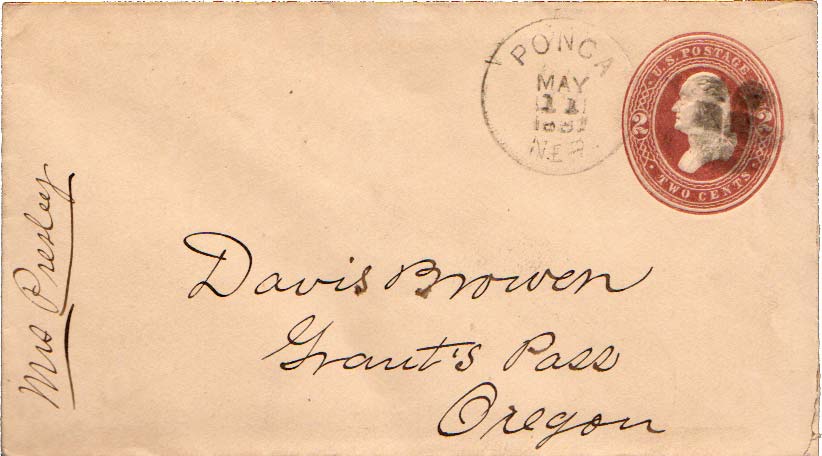 PONCA
MAY
11
NEB.
U.S. POSTAGE
2 2
TWO CENTS
Mrs Presley
Davis Browen
Grant's Pass
Oregon